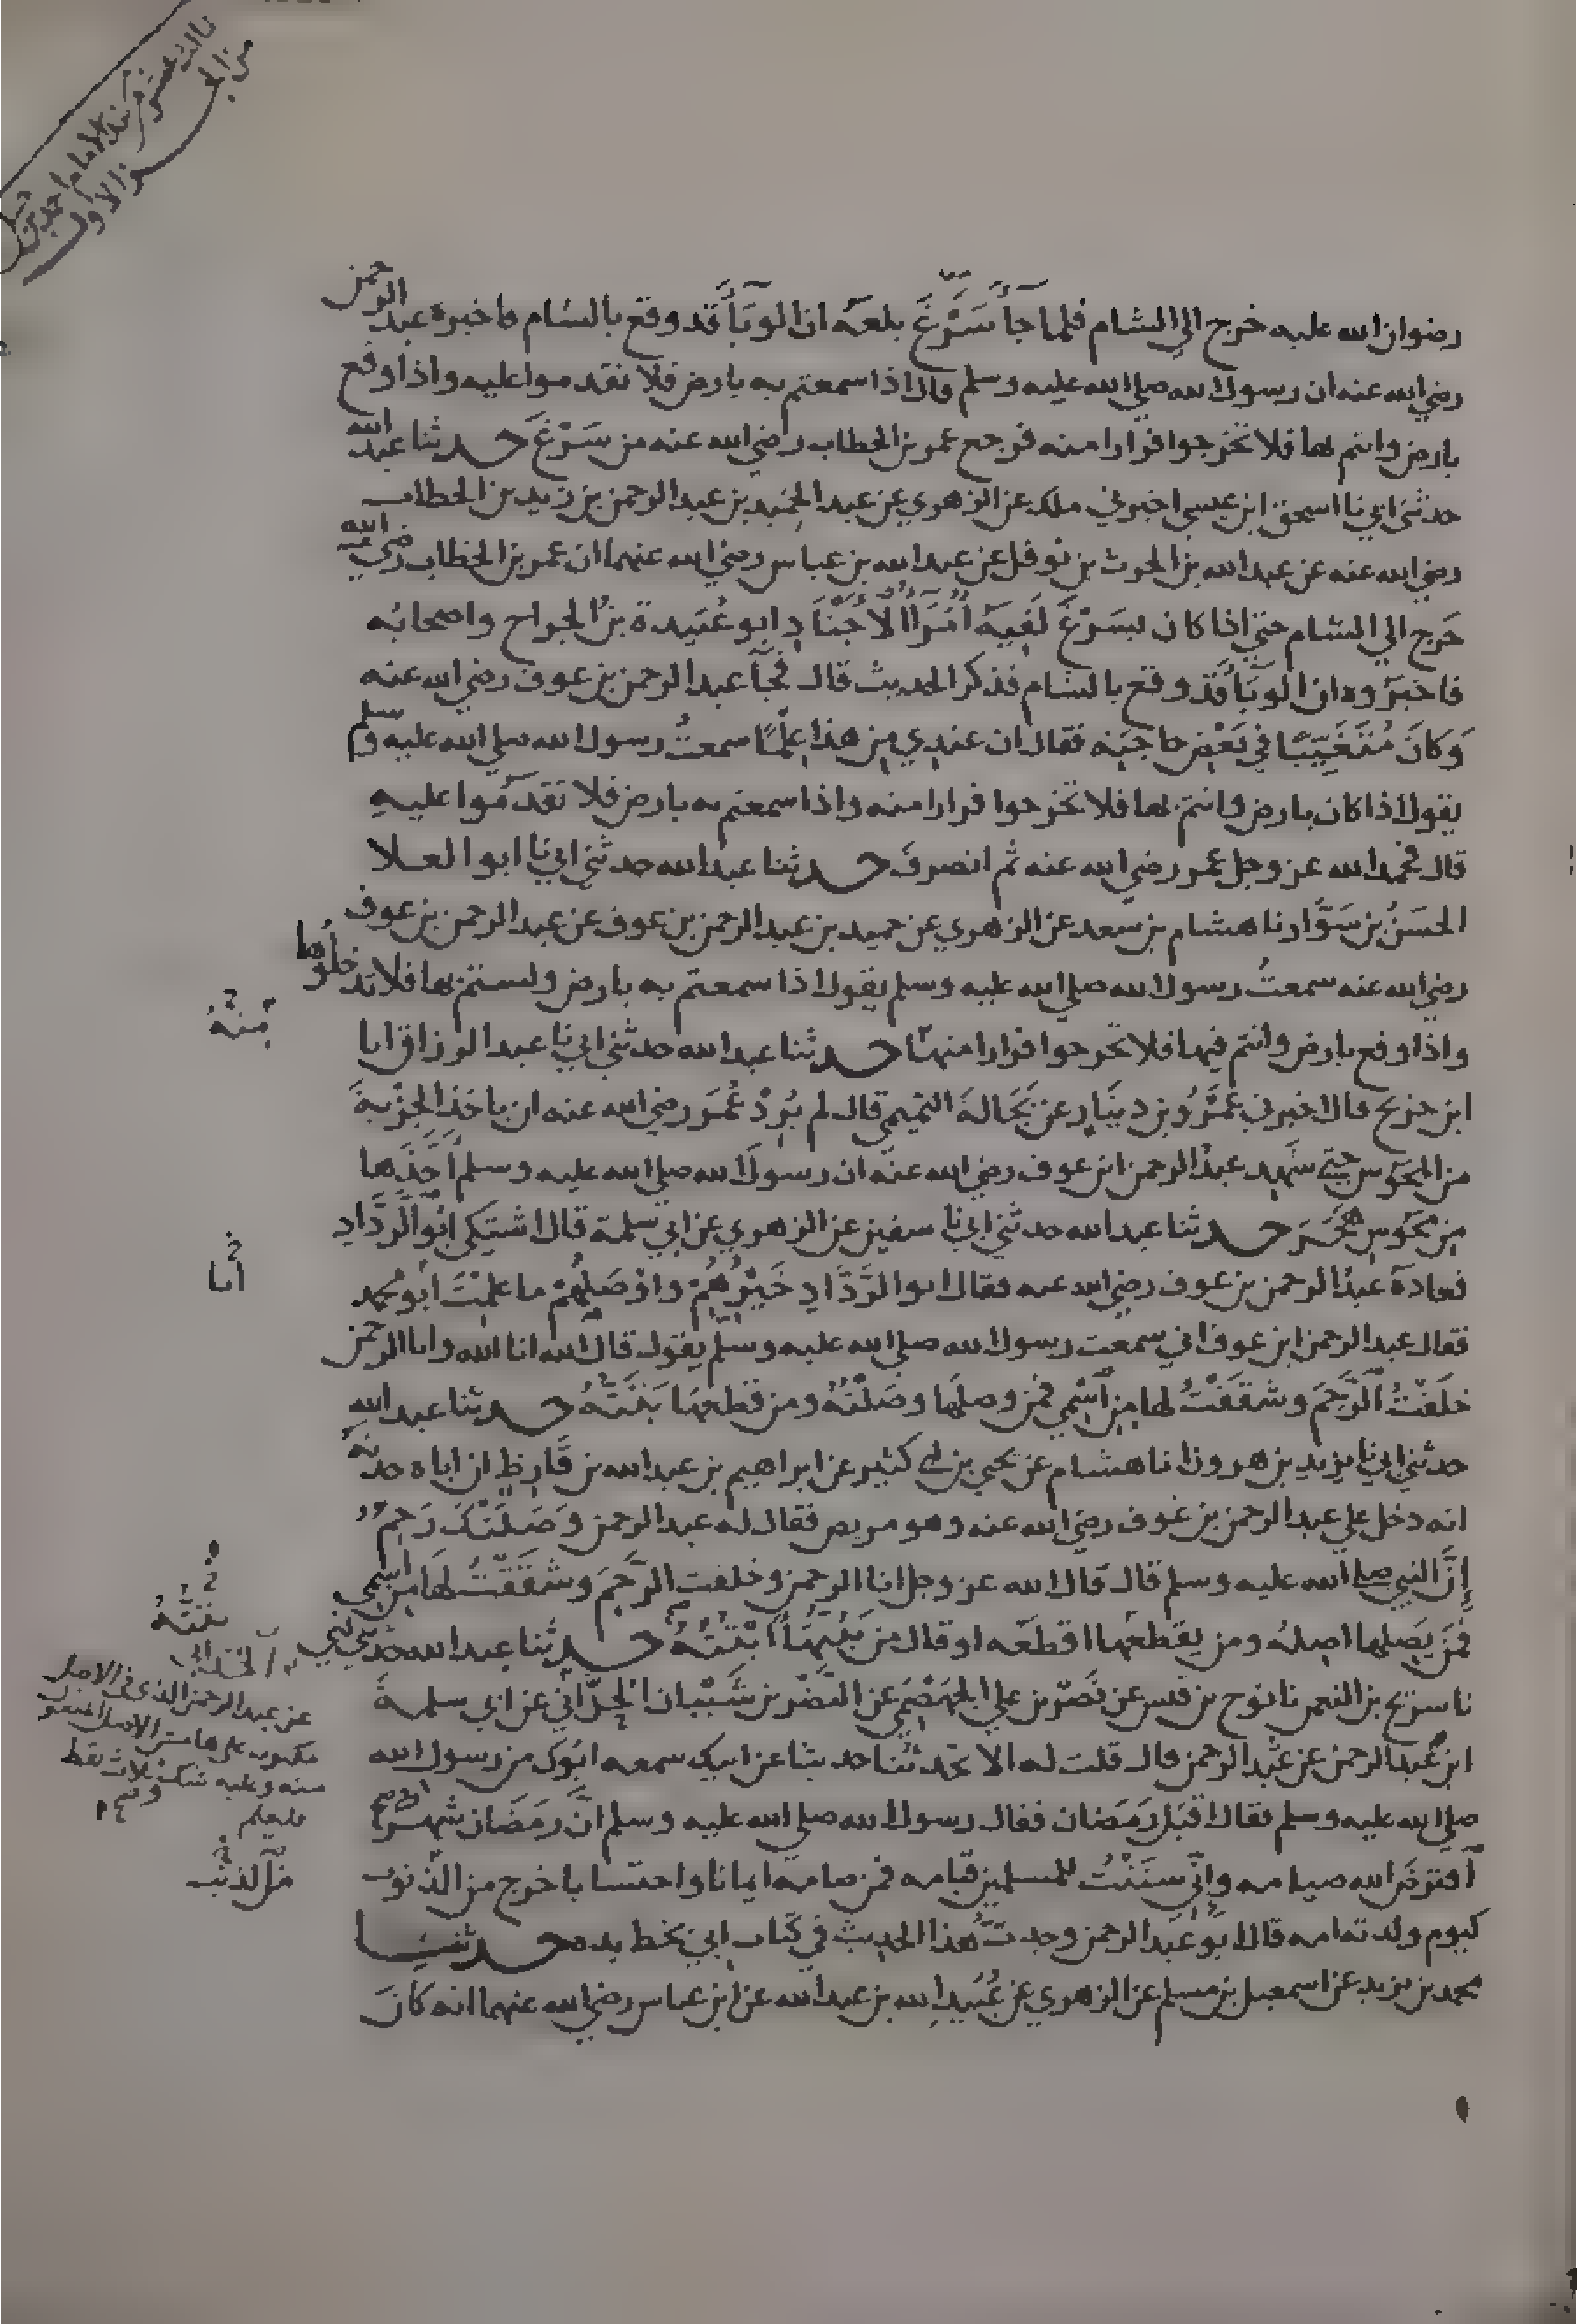 ثالث عشر من مسند الامام احمد بن حنبل
من الجزء الاول
رضوان الله عليه خرج الي الشام فلما جآ سَرْغَ بلغه ان الوبَأَ قد وقع بالشام فاخبره عبد الرحمن
رضي الله عنه ان رسول الله صلي الله عليه وسلم قال اذا سمعتم به بارض فلا تقدموا عليه واذا وقع
بارض وانتم بها فلا تخرجوا فرارا منه فرجع عمر بن الخطاب رضي الله عنه من سَرْغَ حدثنا عبد الله
حدثني ابي نا اسحق ابن عيسي اخبرني ملك عن الزهري عن عبد الحميد بن عبد الرحمن بن زيد بن الخطاب
رضي الله عنه عن عبد الله بن الحرث بن نوفل عن عبد الله بن عباس رضي الله عنهما ان عمر بن الخطاب رضي الله عنه
خرج الي الشام حتي اذا كان بسَرْغَ لَقِيَهُ أُمَرَآُ الأَجْنَادِ ابو عُبَيدة بنُ الجراح واصحابُه
فاخبَرُوه ان الوبَأَ قَدْ وقع بالشام فذكر الحديث قال فجآ عبد الرحمن بن عوف رضي الله عنه
وَكَانَ مُتَغَيِّبًا في بَعْضِ حاجَتِه فقال ان عندِي مِن هذا عِلْمًا سمعتُ رسول الله صلي الله عليه وسلم
يقول اذا كان بارض وانتم بها فلا تخرجوا فرارا منه واذا سمعتم به بارض فلا تقدَمُوا عليهِ
قال فحمد الله عز وجل عمر رضي الله عنه ثم انصرفَ حدثنا عبد الله حدثني ابي نا ابو العلا
الحسَنُ بن سَوَّار نا هشام بن سعد عن الزهري عن حميد بن عبد الرحمن بن عوف عن عبد الرحمن بن عوف
رضي الله عنه سمعتُ رسول الله صلي الله عليه وسلم يقول اذا سمعتم به بارض ولستم بها فلا تدخلُوها
منهُ
واذا وقع بارض وانتم فيها فلا تخرجوا فرارا منهَا حدثنا عبد الله حدثني ابي نا عبد الرزاق انا
ابن جريج قال اخبرني عَمْرُو بن دينَارٍ عن بَجَالةَ التميمي قال لم يُرِدْ عُمَرَ رضي الله عنه ان ياخذ الجِزْيةَ
من المجَوس حتي شهِد عبدُ الرحمن ابن عوف رضي الله عنه ان رسولَ الله صلي الله عليه وسلم أَخَذَها
مِن مَجُوسِ هَجَرَ حدثنا عبد الله حدثني ابي نا سفين عن الزهري عن ابي سَلمة قال اشتَكي ابُو الرَّدَّادِ
انا
فعادهُ عبدُ الرحمن بن عوف رضي الله عنه فقال ابو الرَّدَّادِ خَيْرُهُمْ واوْصَلُهُمْ ما علِمْتَ ابُو محمد
فقال عبد الرحمن ابن عوف اني سمعت رسول الله صلي الله عليه وسلم يقول قال الله انا الله وانا الرحمن
خلقتُ الرَّحِمَ وشقَقْتُ لها مِن اسْمي فمن وصلهَا وصَلْتُهُ ومن قطعهَا بَتَتُّهُ حدثنا عبد الله
حدثني ابي نا يزيد بن هرون انا هشام عن يحيي بن ابي كثير عن ابراهيم بن عبد الله بن قَارِظٍ ان اباه حدثه
انه دخل علي عبد الرحمن بن عَوف رضي الله عنه وهو مريض فقال له عبد الرحمن وَصَلَتْكَ رَحِمٌ
إنَّ النبي صلي الله عليه وسلم قال قال الله عز وجل انا الرحمن وخلقت الرَّحِمَ وشقَقْتُ لهَا مِن اسْمي
بَتَتُّهُ
فمَن يَصِلها اصِلهُ ومن يقطعهَا اقطعْه او قال من يَبُتّهَا أَبْتُتْهُ حدثنا عبد الله حدثني ابي
نا سريج بن النعمن نا نوح بن قيس عن نَصْر بن علي الجَهْضَمي عن النَّضْر بن شَيْبان الحُدَّاني عن ابي سلمةَ
عن عبد الرحمن الذي في الاصل
مكتوب علي هامش الاصل المنقول
منه وعليه شك ثلاث نقط
وصح
فليعلم
ابن عَبد الرحمن عن عَبد الرحمن قال قلت له الا تحَدثنا حديثا عن ابيك سمعه ابُوك من رسول الله
صلي الله عليه وسلم فقال اقبَل رَمَضان فقال رسول الله صلي الله عليه وسلم انَّ رَمَضَان شهرٌ
افترَضَ الله صيامه وإنّي سنَنْتُ للمسلمين قيامه فمن صامه ايمانا واحتسابا خرج من الذّنُوب
من الذنب
كيوم ولدته امه قال ابُو عَبد الرحمن وجدتُ هذا الحديث في كتاب ابي بخط يده حدثنَا
محمد بن يزيد عن اسمعيل بن مسلم عن الزهري عن عُبَيدِ الله بن عبد الله عن ابن عباس رضي الله عنهما انه كانَ